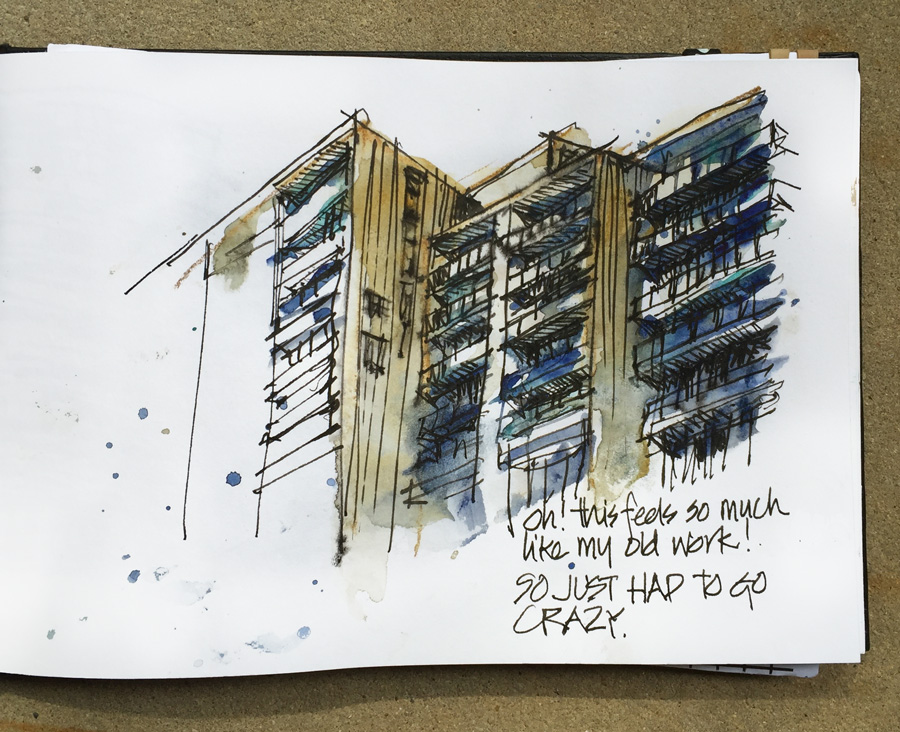 oh! this feels so much
like my old work!
SO JUST HAD TO GO
CRAZY.